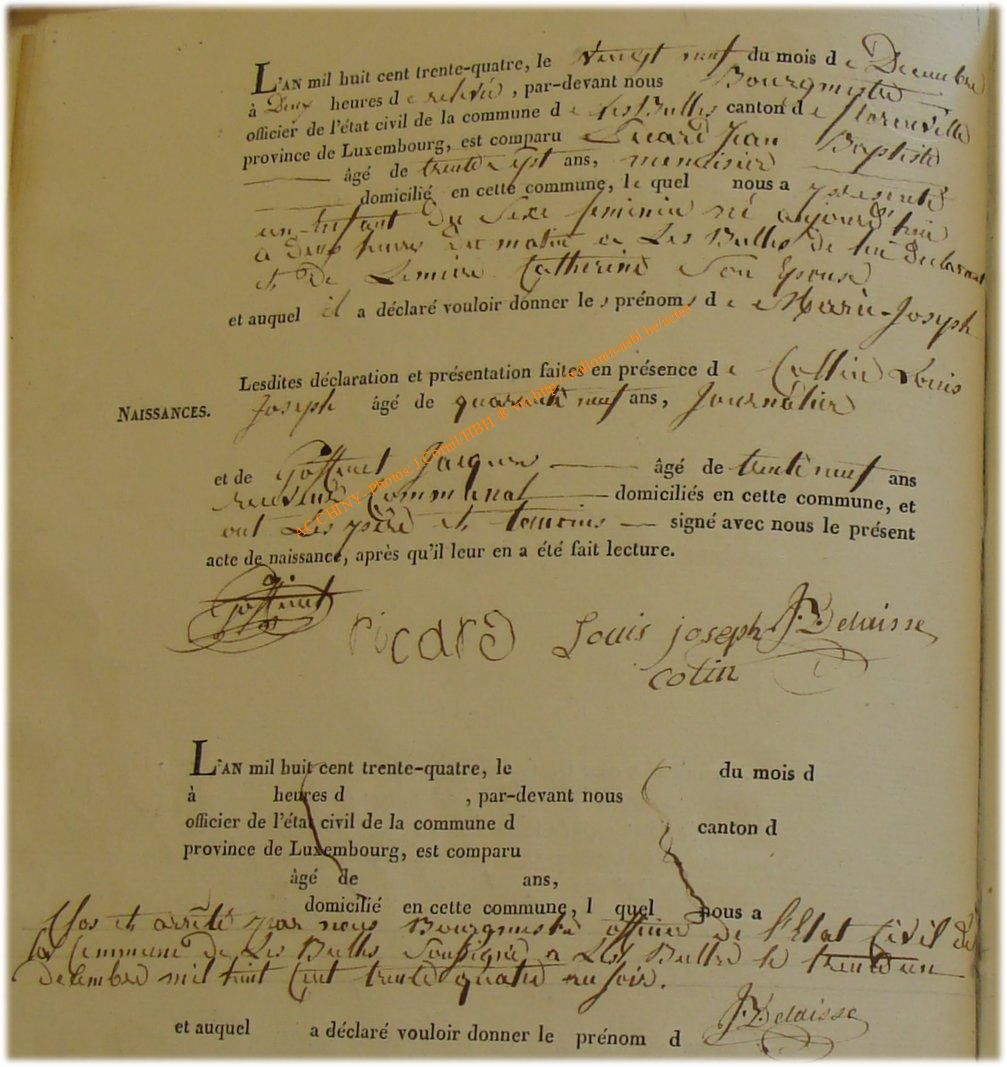 L'AN mil huit cent trente-quatre, le vingt neuf du mois de Decembre
à Deux heures de relevée, par-devant nous Bourgmestre
officier de l'état civil de la commune de Les Bulles canton de florenville
province de Luxembourg, est comparu Ricard Jean Baptiste
âgé de trente sept ans, menuisier
domicilié en cette commune, lequel nous a présenté
un Enfant du Sexe feminin né aujourd'hui
à deux heures du matin a Les Bulles de lui declarant
et de Lemire Catherine Son Epouse
et auquel il a déclaré vouloir donner les prénoms de Marie-Joseph
Lesdites déclaration et présentation faites en présence de Collin Louis
NAISSANCES. Joseph âgé de quarante neuf ans, Journalier
et de Goffinet Jacques âgé de trente neuf ans
Communal domiciliés en cette commune, et
ont Les père et temoins signé avec nous le présent
acte de naissance, après qu'il leur en a été fait lecture.
Goffinet ricard Louis joseph Delaisse
colin
ACCHINY - Photos J.Cornil/HBH
L'AN mil huit cent trente-quatre, le du mois d
à heures d , par-devant nous
officier de l'état civil de la commune d canton d
province de Luxembourg, est comparu
âgé de ans,
domicilié en cette commune, l quel nous a
Clos et arrêté par nous Bourgmestre officier de l'Etat Civil de
la Commune de Les Bulles Soussigné a Les Bulles le trente un
decembre mil huit Cent trente quatre au soir.
Delaisse
et auquel a déclaré vouloir donner le prénom d